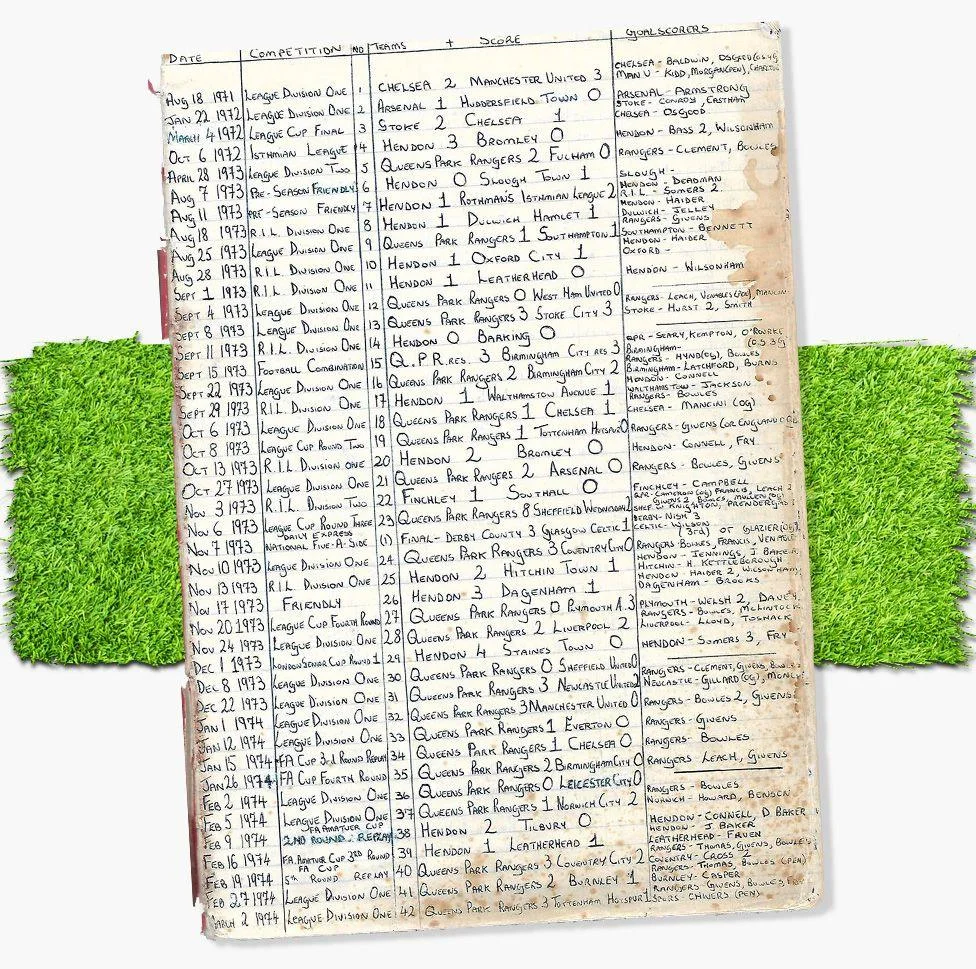 DATE COMPETITION NO TEAMS + SCORE GOALSCORERS
AUG 18 1971 LEAGUE DIVISION ONE 1 CHELSEA 2 MANCHESTER UNITED 3 CHELSEA - BALDWIN, OSGOOD
MAN U - KIDD, MORGAN (PEN), CHARLTON
JAN 22 1972 LEAGUE DIVISION ONE 2 ARSENAL 1 HUDDERSFIELD TOWN 0 ARSENAL - ARMSTRONG
MARCH 4 1972 LEAGUE CUP FINAL 3 STOKE 2 CHELSEA 1 STOKE - CONROY, EASTHAM
CHELSEA - OSGOOD
OCT 6 1972 ISTHMIAN LEAGUE 4 HENDON 3 BROMLEY 0 HENDON - BASS 2, WILSONHAM
APRIL 28 1973 LEAGUE DIVISION TWO 5 QUEENS PARK RANGERS 2 FULHAM 0 RANGERS - CLEMENT, BOWLES
AUG 7 1973 PRE-SEASON FRIENDLY 6 HENDON 0 SLOUGH TOWN 1 SLOUGH -
AUG 11 1973 PRE-SEASON FRIENDLY 7 HENDON 1 ROTHMAN'S ISTHMIAN LEAGUE 2 HENDON - DEADMAN
R.I.L. - SOMERS 2
AUG 18 1973 R.I.L. DIVISION ONE 8 HENDON 1 DULWICH HAMLET 1 HENDON - HAIDER
DULWICH - JELLEY
AUG 25 1973 LEAGUE DIVISION ONE 9 QUEENS PARK RANGERS 1 SOUTHAMPTON 1 RANGERS - GIVENS
SOUTHAMPTON - BENNETT
AUG 28 1973 R.I.L. DIVISION ONE 10 HENDON 1 OXFORD CITY 1 HENDON - HAIDER
OXFORD -
SEPT 1 1973 R.I.L. DIVISION ONE 11 HENDON 1 LEATHERHEAD 0 HENDON - WILSONHAM
SEPT 4 1973 LEAGUE DIVISION ONE 12 QUEENS PARK RANGERS 0 WEST HAM UNITED 0
SEPT 8 1973 LEAGUE DIVISION ONE 13 QUEENS PARK RANGERS 3 STOKE CITY 3 RANGERS - LEACH, VENABLES (PEN), MANCINI
STOKE - HURST 2, SMITH
SEPT 11 1973 R.I.L. DIVISION ONE 14 HENDON 0 BARKING 0
SEPT 15 1973 FOOTBALL COMBINATION 15 Q.P.R. RES. 3 BIRMINGHAM CITY RES 3 QPR - SEARY, KEMPTON, O'ROURKE
BIRMINGHAM -
SEPT 22 1973 LEAGUE DIVISION ONE 16 QUEENS PARK RANGERS 2 BIRMINGHAM CITY 2 RANGERS - HYND (OG), BOWLES
BIRMINGHAM - LATCHFORD, BURNS
SEPT 29 1973 R.I.L. DIVISION ONE 17 HENDON 1 WALTHAMSTOW AVENUE 1 HENDON - CONNELL
WALTHAMSTOW - JACKSON
OCT 6 1973 LEAGUE DIVISION ONE 18 QUEENS PARK RANGERS 1 CHELSEA 1 RANGERS - BOWLES
CHELSEA - MANCINI (OG)
LEAGUE CUP ROUND TWO 19 QUEENS PARK RANGERS 1 TOTTENHAM HOTSPUR 0 RANGERS - GIVENS (OR ENGLAND OG)
OCT 13 1973 R.I.L. DIVISION ONE 20 HENDON 2 BROMLEY 0 HENDON - CONNELL, FRY
OCT 27 1973 LEAGUE DIVISION ONE 21 QUEENS PARK RANGERS 2 ARSENAL 0 RANGERS - BOWLES, GIVENS
NOV 3 1973 R.I.L. DIVISION TWO 22 FINCHLEY 1 SOUTHALL 0 FINCHLEY - CAMPBELL
NOV 6 1973 LEAGUE CUP ROUND THREE 23 QUEENS PARK RANGERS 8 SHEFFIELD WEDNESDAY 2 QPR - CAMERON (OG) FRANCIS, LEACH 2
GIVENS 2, BOWLES, MULLEN (OG)
SHEF W KNIGHTON, PRENDERGAST
NOV 7 1973 DAILY EXPRESS NATIONAL FIVE-A-SIDE (1) FINAL - DERBY COUNTY 3 GLASGOW CELTIC 1 DERBY - NISH 3
CELTIC - WILSON
NOV 10 1973 LEAGUE DIVISION ONE 24 QUEENS PARK RANGERS 3 COVENTRY CITY 0 RANGERS BOWLES, FRANCIS, VENABLES
NOV 13 1973 R.I.L. DIVISION ONE 25 HENDON 2 HITCHIN TOWN 1 HENDON - JENNINGS, J. BAKER
HITCHIN - H. KETTLEBOROUGH
NOV 17 1973 FRIENDLY 26 HENDON 3 DAGENHAM 1 HENDON - HAIDER 2, WILSONHAM
DAGENHAM - BROOKS
NOV 20 1973 LEAGUE CUP FOURTH ROUND 27 QUEENS PARK RANGERS 0 PLYMOUTH A. 3 PLYMOUTH - WELSH 2, DAVEY
NOV 24 1973 LEAGUE DIVISION ONE 28 QUEENS PARK RANGERS 2 LIVERPOOL 2 RANGERS - BOWLES, MCLINTOCK
LIVERPOOL - LLOYD, TOSHACK
DEC 1 1973 LONDON SENIOR CUP ROUND 1 29 HENDON 4 STAINES TOWN 0 HENDON - SOMERS 3, FRY
DEC 8 1973 LEAGUE DIVISION ONE 30 QUEENS PARK RANGERS 0 SHEFFIELD UNITED 0
DEC 22 1973 LEAGUE DIVISION ONE 31 QUEENS PARK RANGERS 3 NEWCASTLE UNITED 2 RANGERS - CLEMENT, GIVENS, BOWLES
NEWCASTLE - GILLARD (OG), MONCUR
JAN 1 1974 LEAGUE DIVISION ONE 32 QUEENS PARK RANGERS 3 MANCHESTER UNITED 0 RANGERS - BOWLES 2, GIVENS
JAN 12 1974 LEAGUE DIVISION ONE 33 QUEENS PARK RANGERS 1 EVERTON 0 RANGERS - GIVENS
JAN 15 1974 FA CUP 3rd ROUND REPLAY 34 QUEENS PARK RANGERS 1 CHELSEA 0 RANGERS - BOWLES
JAN 26 1974 FA CUP FOURTH ROUND 35 QUEENS PARK RANGERS 2 BIRMINGHAM CITY 0 RANGERS LEACH, GIVENS
FEB 2 1974 LEAGUE DIVISION ONE 36 QUEENS PARK RANGERS 0 LEICESTER CITY 0
FEB 5 1974 LEAGUE DIVISION ONE 37 QUEENS PARK RANGERS 1 NORWICH CITY 2 RANGERS - BOWLES
NORWICH - HOWARD, BENSON
FEB 9 1974 FA AMATUER CUP 2ND ROUND REPLAY 38 HENDON 2 TILBURY 0 HENDON - CONNELL, D BAKER
FEB 16 1974 FA AMATUER CUP 3RD ROUND 39 HENDON 1 LEATHERHEAD 1 HENDON - J. BAKER
LEATHERHEAD - FRUEN
FEB 19 1974 FA CUP 5th ROUND REPLAY 40 QUEENS PARK RANGERS 3 COVENTRY CITY 2 RANGERS - THOMAS, GIVENS, BOWLES
COVENTRY - CROSS 2
FEB 27 1974 LEAGUE DIVISION ONE 41 QUEENS PARK RANGERS 2 BURNLEY 1 RANGERS THOMAS, BOWLES (PEN)
BURNLEY - CASPER
MARCH 2 1974 LEAGUE DIVISION ONE 42 QUEENS PARK RANGERS 3 TOTTENHAM HOTSPUR 1 RANGERS - GIVENS, BOWLES,
SPURS - CHIVERS (PEN)